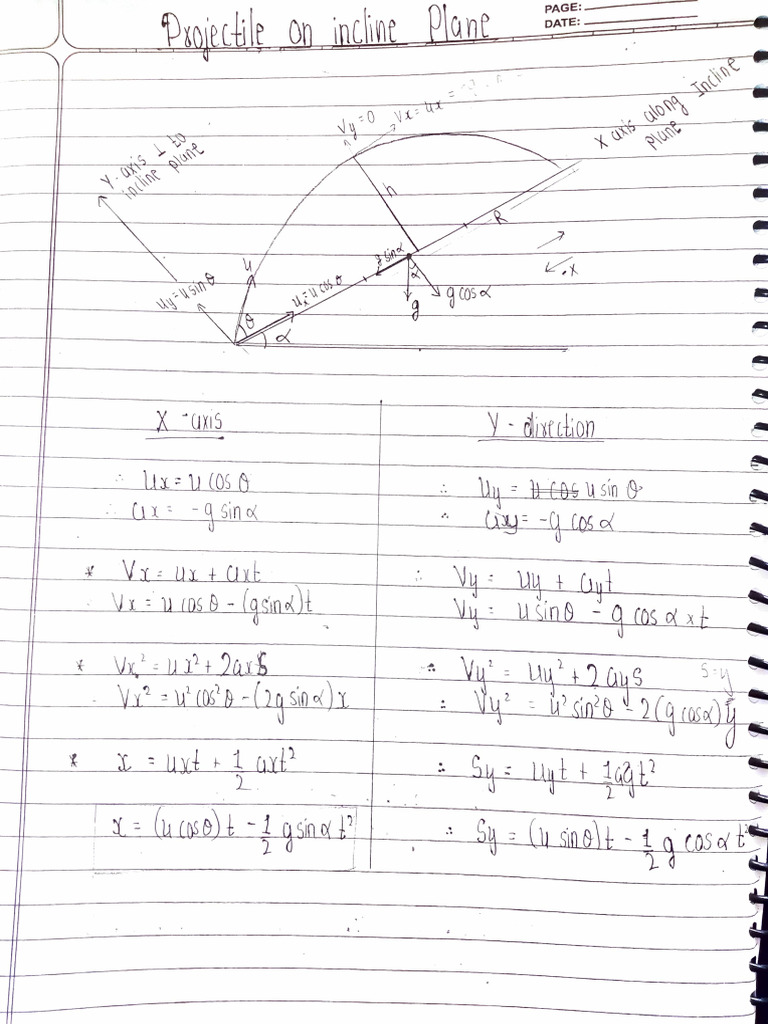 PAGE:
DATE:
Projectile on incline Plane
Vy=0
Vx = ux =
X axis along Incline plane
Y-axis ⊥ to
incline plane
h
R
g sinα
α
x
uy = u sin θ
u
ux = u cos θ
g
g cos α
θ
α
X - axis
∴ ux = u cos θ
∴ ax = -g sin α
* Vx = ux + axt
Vx = u cos θ - (g sin α)t
* Vx² = ux² + 2axS
Vx² = u² cos² θ - (2g sin α)x
* x = uxt + 1/2 axt²
x = (u cos θ) t - 1/2 g sin α t²
Y - direction
∴ uy = u cos u sin θ
∴ ay = -g cos α
∴ Vy = uy + ayt
Vy = u sin θ - g cos α x t
∴ Vy² = uy² + 2 ays s=y
∴ Vy² = u² sin² θ - 2(g cos α) y
∴ Sy = uyt + 1/2 ayt²
∴ Sy = (u sin θ) t - 1/2 g cos α t²